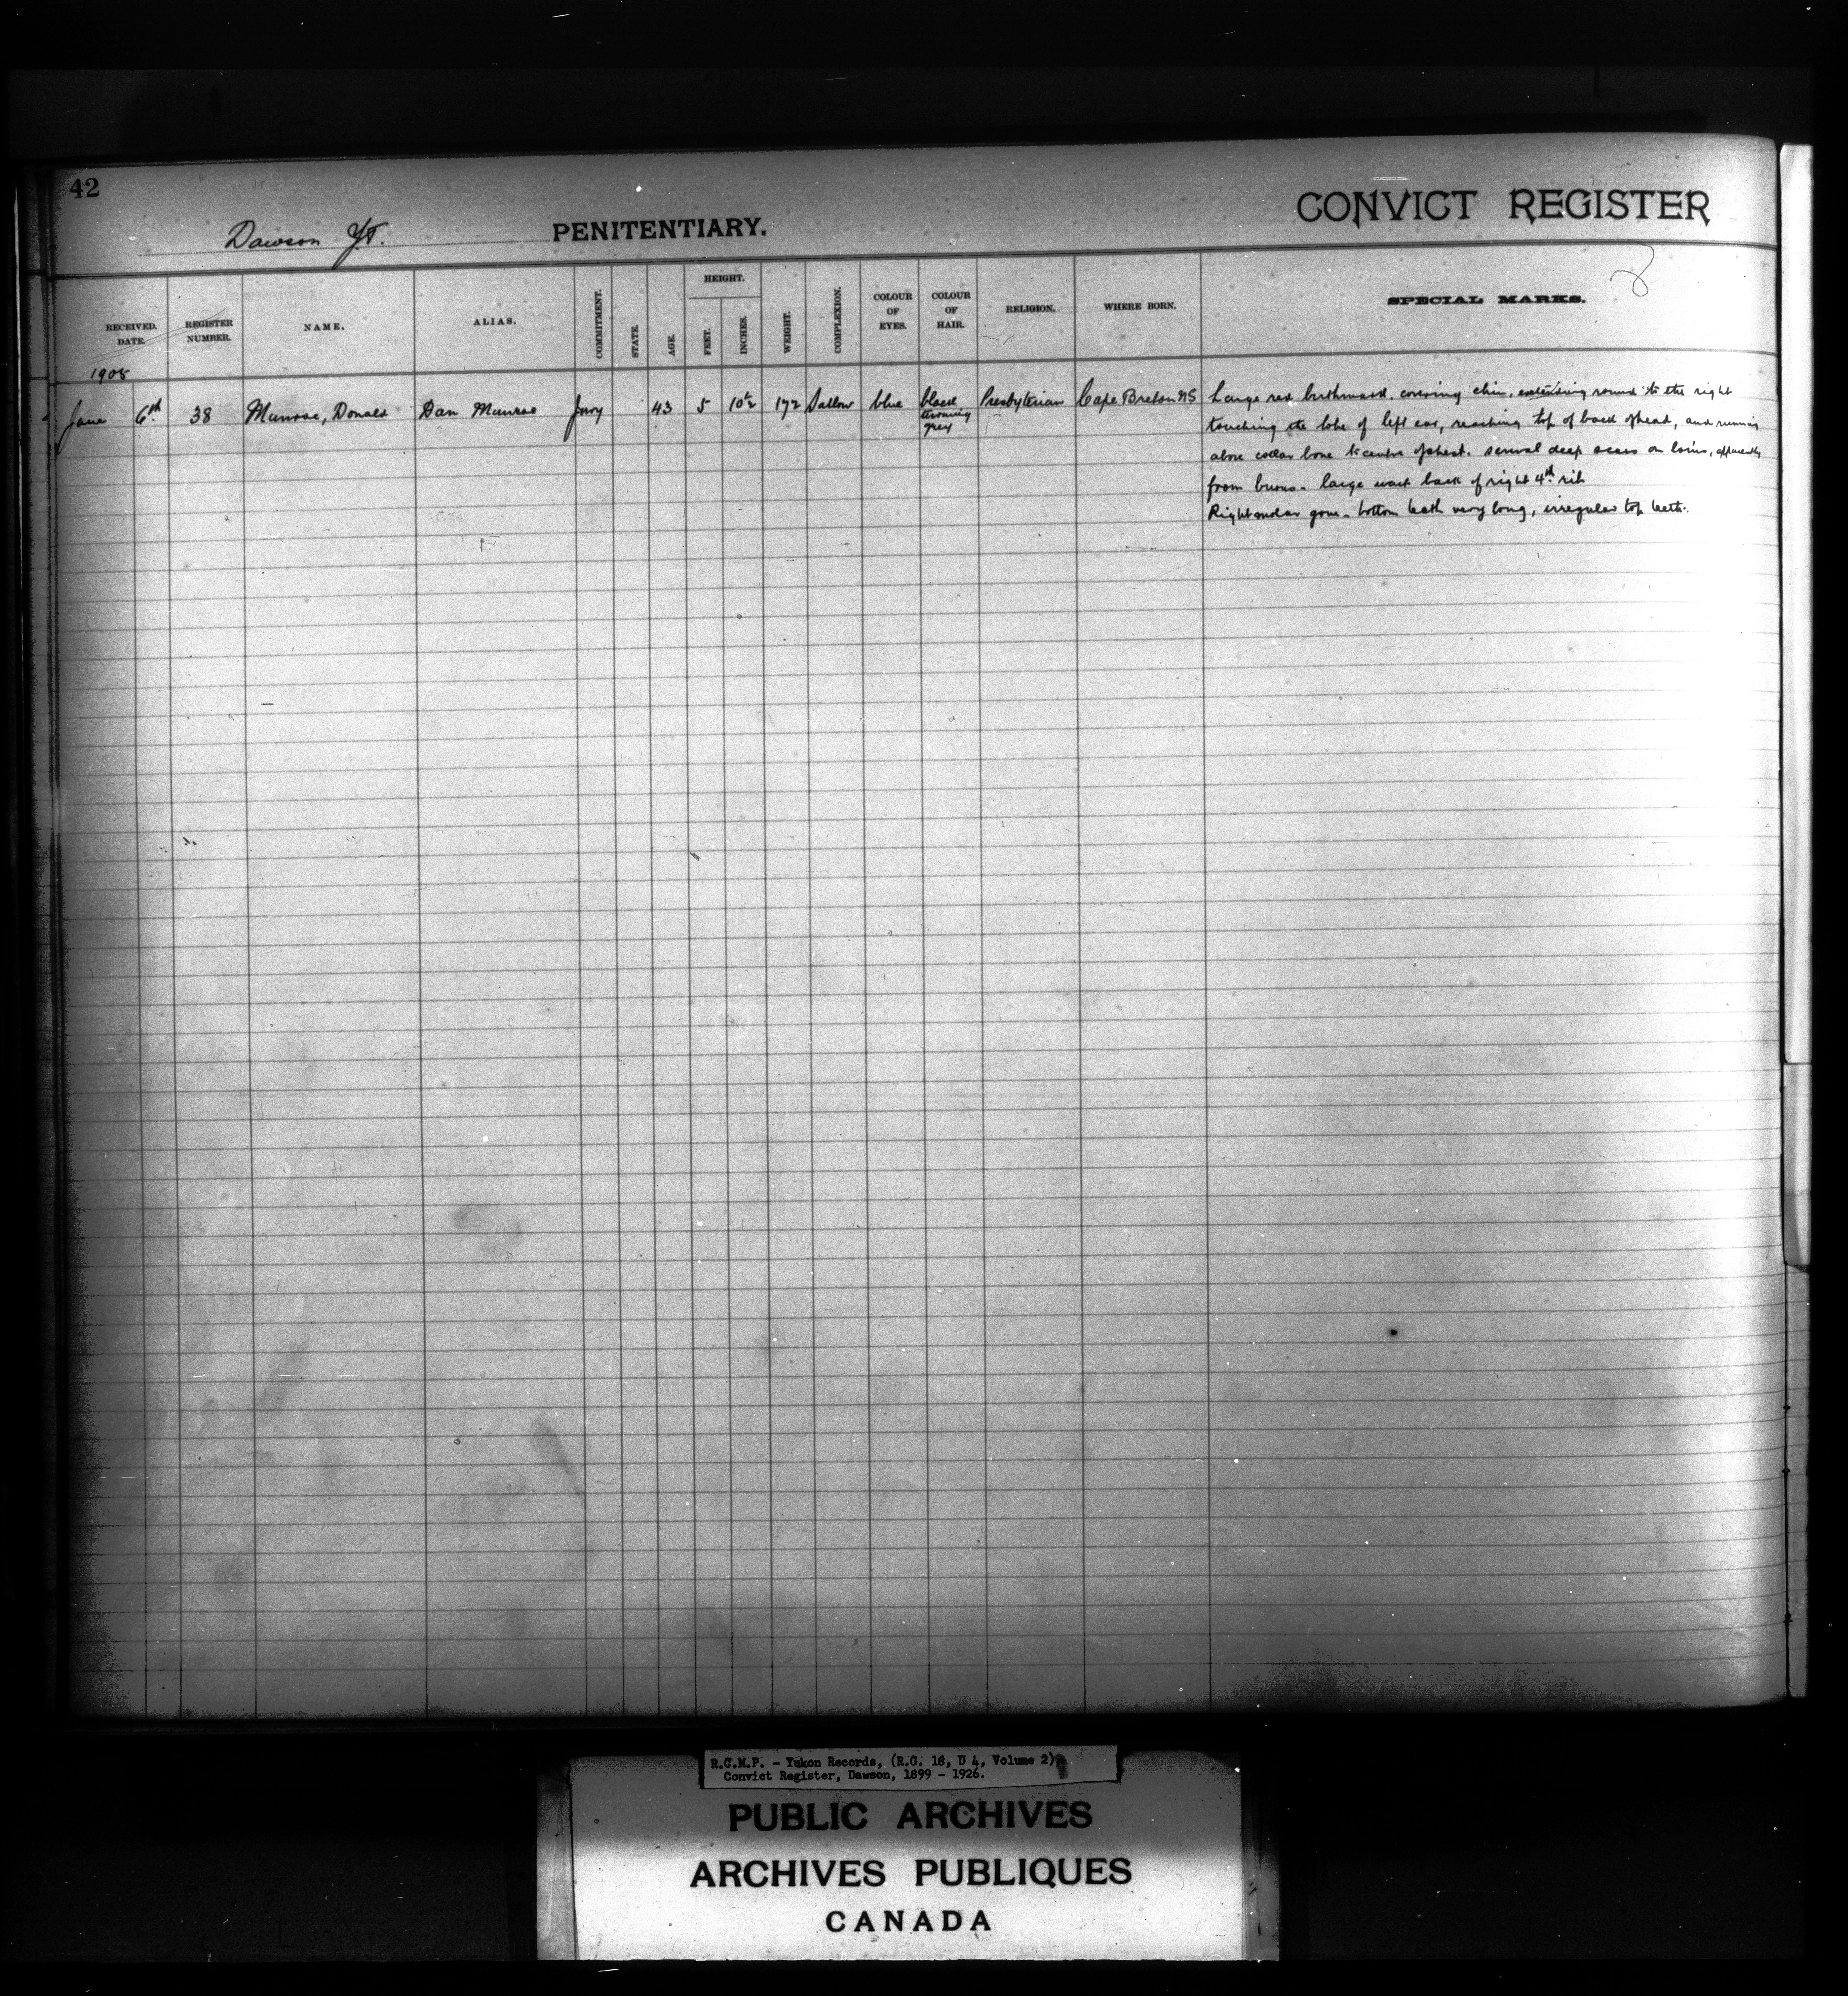 42
Dawson Y.T. PENITENTIARY.
CONVICT REGISTER
RECEIVED. DATE.
REGISTER NUMBER.
NAME.
ALIAS.
COMMITMENT.
STATE.
AGE.
HEIGHT.
FEET.
INCHES.
WEIGHT.
COMPLEXION.
COLOUR OF EYES.
COLOUR OF HAIR.
RELIGION.
WHERE BORN.
SPECIAL MARKS.
1905
June 6th 38 Munroe, Donald Dan Munroe Jury 43 5 10½ 172 Sallow blue black turning grey Presbyterian Cape Breton NS
Large red birthmark covering chin, extending round to the right
touching the lobe of left ear, reaching top of back of head, and running
above collar bone to centre of chest. several deep scars on loins, apparently
from burns - large wart back of right 4th rib
Right molar gone - bottom teeth very long, irregular top teeth.
R.C.M.P. - Yukon Records, (R.G. 18, D 4, Volume 2)
Convict Register, Dawson, 1899 - 1926.
PUBLIC ARCHIVES
ARCHIVES PUBLIQUES
CANADA